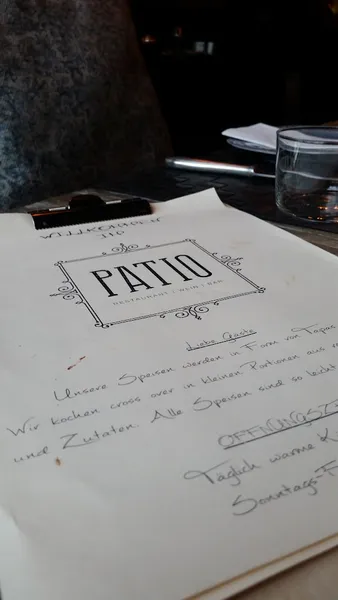 WILLKOMMEN
IM
PATIO
RESTAURANT | WEIN | BAR
Liebe Gäste
Unsere Speisen werden in Form von Tapas
Wir kochen cross over in kleinen Portionen aus
und Zutaten. Alle Speisen sind so leicht
ÖFFNUNGSZE
Täglich warme K
Sonntags-F